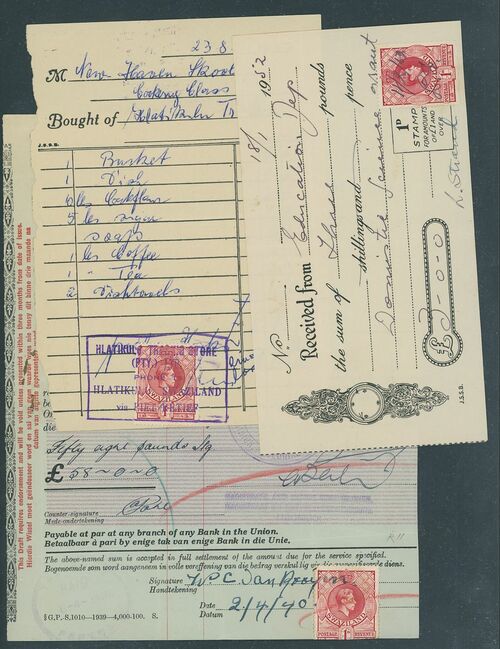 23 8
M New Haven School
Cooking Class
Bought of Hlatikulu Tr
J.S.S.B.
1 Basket
1 Dish
5 lbs sugar
soap
1 lb Coffee
1 " Tea
2 Dishtowels
HLATIKULU TRADING STORE
(PTY.) LTD.
PHONE
HLATIKULU SWAZILAND
via PIET RETIEF
SWAZILAND
No.
18/1 1952
Received from Education Dep
the sum of Three pounds
shillings and pence
Domestic Science Grant
£3-0-0
1D
STAMP
FOR AMOUNTS
OF £1 AND
OVER
J.S.S.B.
This Draft requires endorsement and will be void unless presented within three months from date of issue.
Hierdie Wissel moet geëndosseer word en sal van nul en gener waarde wees tensy dit binne drie maande na
datum van uitgifte gepresenteer
Fifty eight pounds
£58-0-0
Counter-signature
Mede-ondertekening
Payable at par at any branch of any Bank in the Union.
Betaalbaar à pari by enige tak van enige Bank in die Unie.
R11
The above-named sum is accepted in full settlement of the amount due for the service specified.
Bogenoemde som word aangeneem in volle voreffening van die bedrag verskuldig vir die gespesifiseerde diens.
Signature
Handtekening
W. C. Van Rooyen
Date
Datum
2/4/40
§ G.P.-S.1010-1939-4,000-100. S.
SWAZILAND
POSTAGE 1D REVENUE